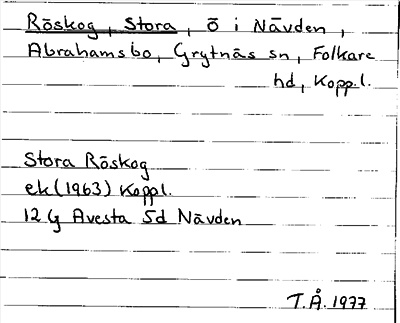 Röskog, Stora, ö i Nävden,
Abrahamsbo, Grytnäs sn, Folkare
hd, Koppl.
Stora Röskog
ek (1963) Koppl.
12 G Avesta 5d Nävden
T.Å. 1977